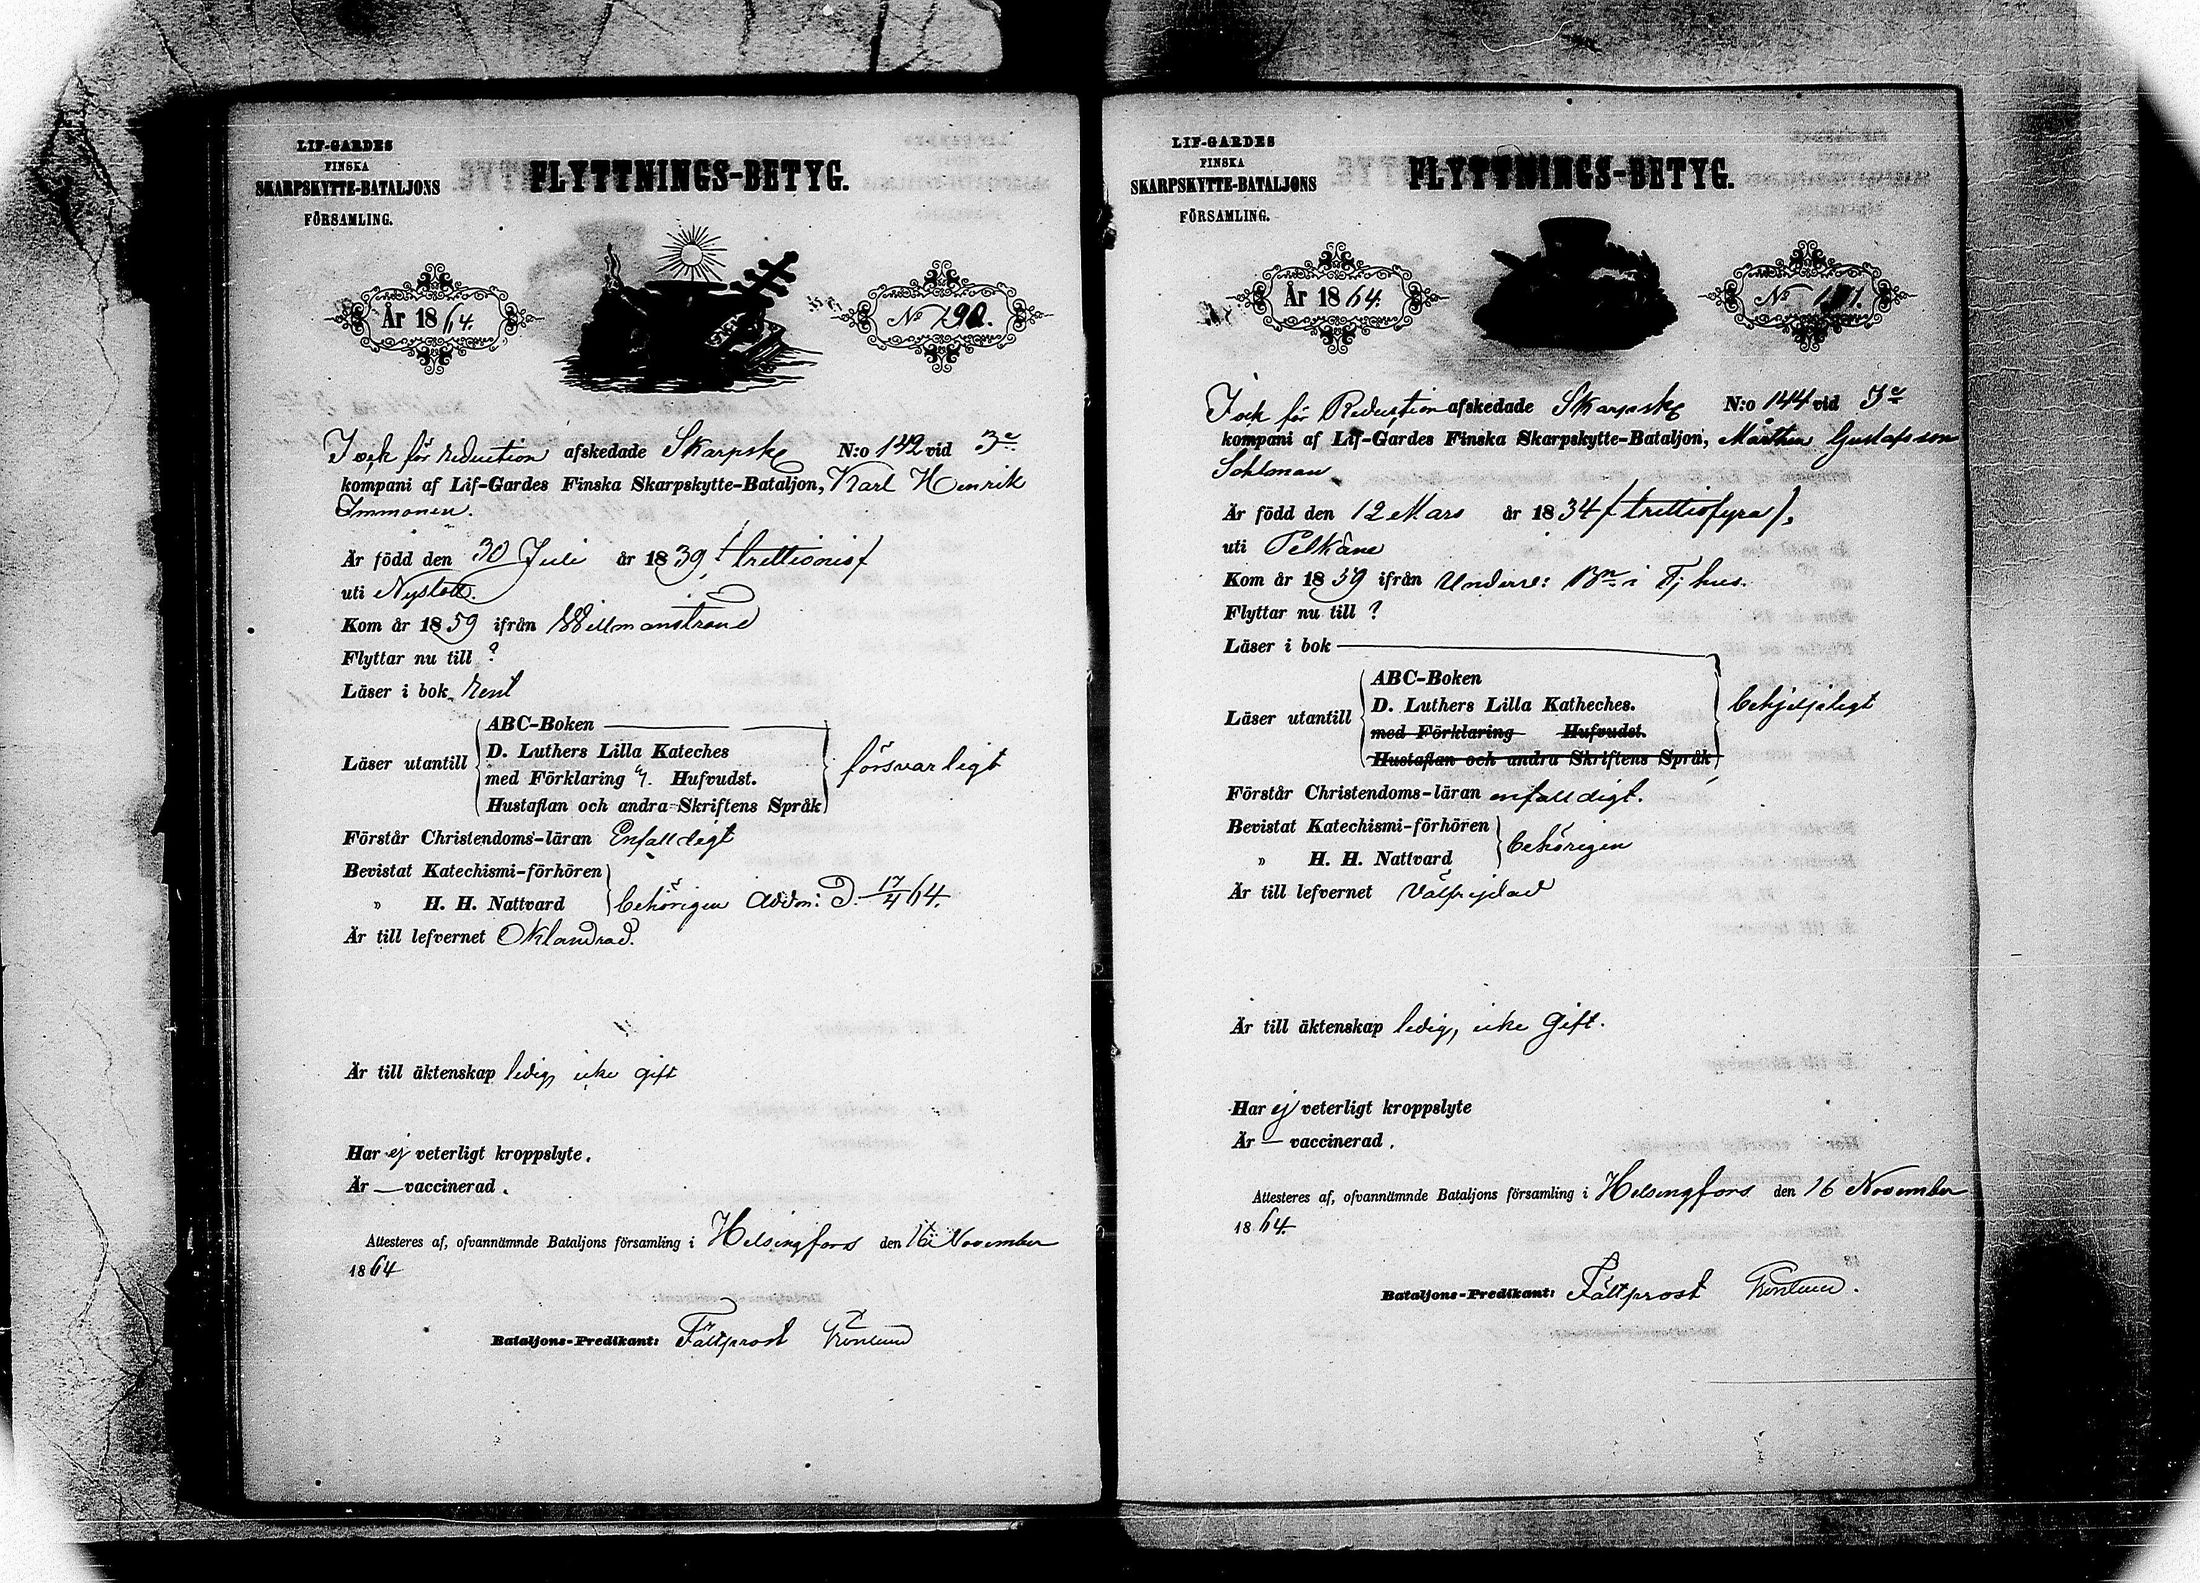 LIF-GARDES
FINSKA
SKARPSKYTTE-BATALJONS
FÖRSAMLING.
FLYTTNINGS-BETYG.
År 1864.
No 190.
och för reduction afskedade Skarpsk N:o 142 vid 3e
kompani af Lif-Gardes Finska Skarpskytte-Bataljon, Karl Henrik
Immonen.
Är född den 30 Juli år 1839 / trettionio /
uti Nyslott.
Kom år 1859 ifrån Willmanstrand
Flyttar nu till ?
Läser i bok rent
ABC-Boken
Läser utantill
D. Luthers Lilla Kateches
med Förklaring Hufvudst.
Hustaflan och andra Skriftens Språk
försvarligt
Förstår Christendoms-läran Enfalldigt
Bevistat Katechismi-förhören
» H. H. Nattvard
behörigen Admi: D. 17/4 64.
Är till lefvernet Oklandrad.
Är till äktenskap ledig, icke gift
Har ej veterligt kroppslyte.
Är — vaccinerad.
Attesteres af, ofvannämnde Bataljons församling i Helsingfors den 16 November
1864
Bataljons-Predikant: Fältprost
LIF-GARDES
FINSKA
SKARPSKYTTE-BATALJONS
FÖRSAMLING.
FLYTTNINGS-BETYG.
År 1864.
No 191.
och för Reduction afskedade Skarpsk N:o 144 vid 3e
kompani af Lif-Gardes Finska Skarpskytte-Bataljon, Mårthen Gustafsson
Sohlman
Är född den 12 Mars år 1834 / trettiofyra /,
uti Pelkäne
Kom år 1859 ifrån Underv: Bn i Tj hus.
Flyttar nu till ?
Läser i bok
ABC-Boken
Läser utantill
D. Luthers Lilla Katheches.
med Förklaring Hufvudst.
Hustaflan och andra Skriftens Språk
behjelpligt
Förstår Christendoms-läran enfalldigt.
Bevistat Katechismi-förhören
» H. H. Nattvard
behörigen
Är till lefvernet Välfrejdad
Är till äktenskap ledig, icke gift.
Har ej veterligt kroppslyte
Är — vaccinerad.
Attesteres af, ofvannämnde Bataljons församling i Helsingfors den 16 November
1864.
Bataljons-Predikant: Fältprost